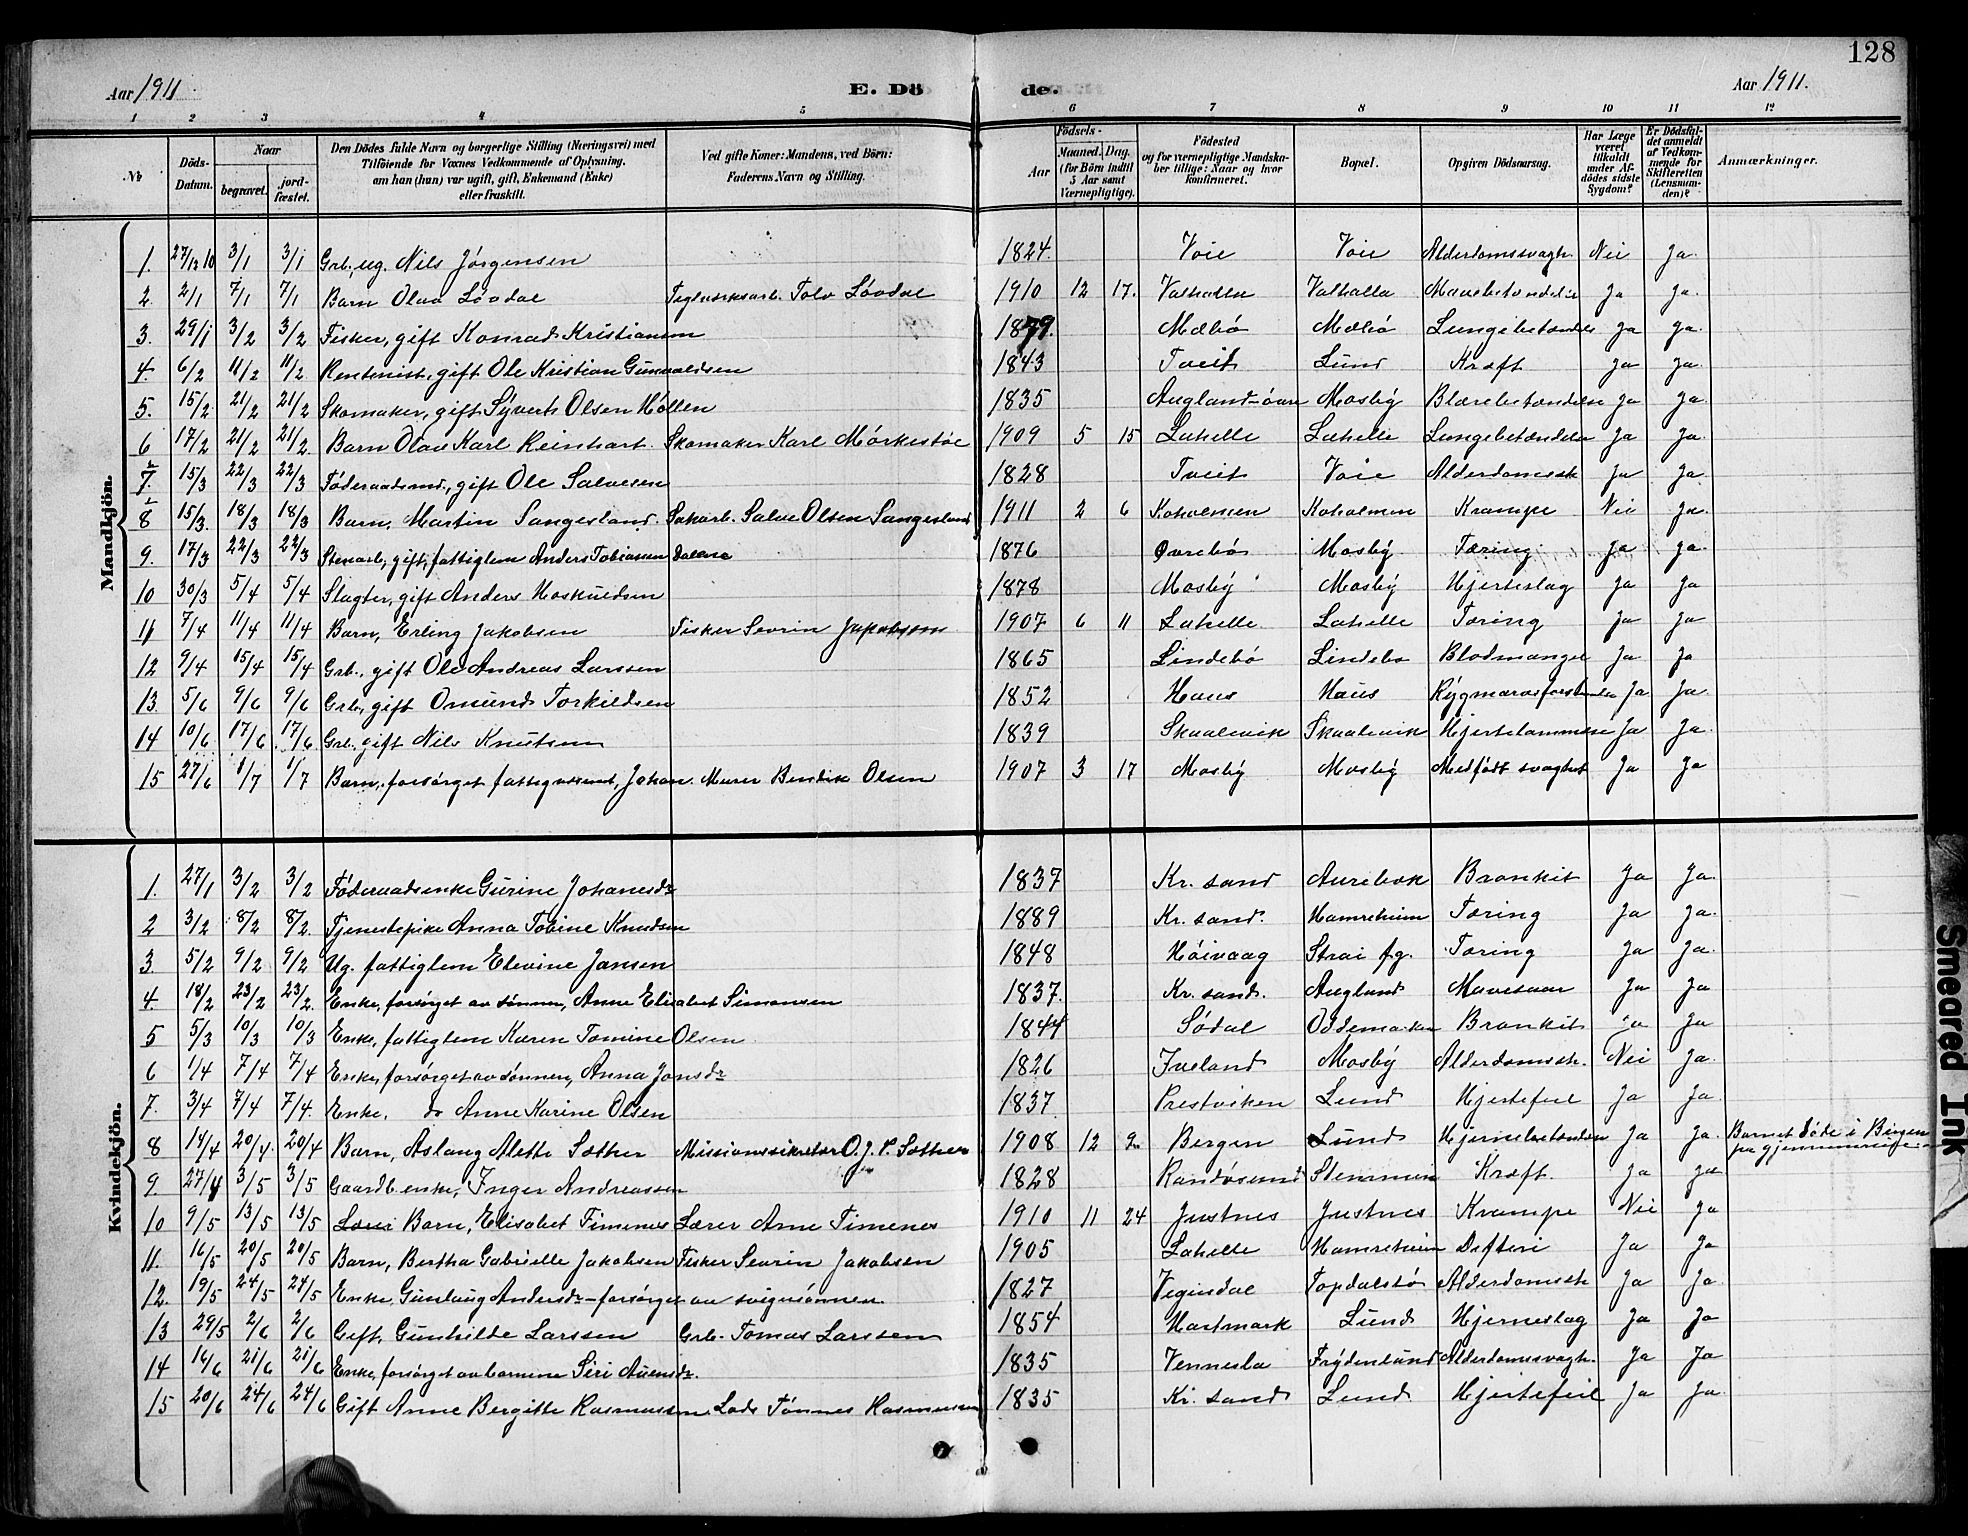 128
Aar 1911 E. Dö de. Aar 1911.
1 2 3 4 5 6 7 8 9 10 11 12
№ Döds-Datum. Naar begravet. jordfæstet. Den Dödes fulde Navn og borgerlige Stilling (Næringsvei) med Tilföiende for Voxnes Vedkommende af Oplysning, om han (hun) var ugift, gift, Enkemand (Enke) eller fraskilt. Ved gifte Koner: Mandens, ved Börn: Faderens Navn og Stilling. Födsels- Aar Maaned. Dag. (for Börn indtil 5 Aar samt Værnepligtige). Födested og for værnepligtige Mandskaber tillige: Naar og hvor konfirmeret. Bopæl. Opgiven Dödsaarsag. Har Læge været tilkaldt under Afdödes sidste Sygdom? Er Dödsfaldet anmeldt af Vedkommende for Skifteretten (Lensmanden)? Anmærkninger.
Mandkjön.
1. 27/12 10 3/1 3/1 Grb., ug. Nils Jørgensen 1824. Voie Voie Alderdomssvagh. Nei Ja.
2. 2/1 7/1 7/1 Barn Olav Løvdal Teglverksarb. Tolv Løvdal 1910 12 17. Valhalla Valhalla Mavebetændelse Ja Ja.
3. 29/1 3/2 3/2 Fisker, gift Konrad Kristiansen 1879. Mæbø Mæbø Lungebetændelse Ja Ja.
4. 6/2 11/2 11/2 Rentenist, gift Ole Kristian Gunvaldsen 1843 Tveit Lund Kræft Ja Ja.
5. 15/2 21/2 21/2 Skomaker, gift Syvert Olsen Høllen 1835 Augland-øvre Mosby Blærebetændelse Ja Ja.
6 17/2 21/2 21/2. Barn Olav Karl Reinhart. Skomaker Karl Mørkestøl 1909 5 15 Lahelle Lahelle Lungebetændelse Ja Ja.
7. 15/3 22/3 22/3 Føderaadsmd., gift Ole Salvesen 1828 Tveit Voie Alderdomssvh Ja Ja.
8 15/3. 18/3 18/3 Barn, Martin Sangesland. Sakarb. Salve Olsen Sangesland 1911 2 6 Koholmen Koholmen Krampe Nei Ja.
9. 17/3 22/3 22/3 Stenarb, gift, fattiglem Anders Tobiassen Dalene 1876 Øvrebø Mosby Tæring. Ja Ja.
10 30/3 5/4 5/4 Slagter, gift Anders Hoskuldsen 1878 Mosby Mosby Hjerteslag Ja Ja
11 7/4 11/4 11/4 Barn, Erling Jakobsen Fisker Sevrin Jakobsen 1907 6 11 Lahelle. Lahelle Tæring Ja Ja
12 9/4 15/4 15/4 Grb., gift Ole Andreas Larssen 1865 Lindebø Lindebø Blodmangel Ja Ja
13. 5/6 9/6 9/6 Grb, gift Omund Torkildsen 1852 Haus Haus Rygmarvs Ja Ja.
14 10/6 17/6 17/6 Grb. gift Nils Knutsen 1839 Skaalevik Skaalevik Hjertelammelse Ja Ja.
15 27/6 1/7 1/7 Barn, forsørget fattigvesenet, Johan. Murer Bendik Olsen 1907 3 17 Mosby Mosby Medfødt svaghet Ja Ja
Kvindekjön.
1. 27/1 3/2 3/2 Føderaadsenke Gurine Johanesdr 1837 Kr. sand Aurebæk Bronkit Ja Ja.
2 3/2 8/2 8/2. Tjenestepike Anna Tobine Knudsen 1889 Kr. sand. Hamreheim Tæring Ja Ja.
3. 5/2 9/2 9/2. Ug. fattiglem Elevine Jansen 1848 Høivaag Strai fg. Tæring Ja Ja.
4. 18/2 23/2 23/2. Enke, forsørget av sønnen, Anne Elisabet Simonsen 1837. Kr. sand. Augland Mavesaar Ja Ja
5 5/3 10/3 10/3 Enke, fattiglem Karen Tomine Olsen. 1844 Sødal Oddemarken Bronkit Ja Ja
6 1/4 7/4 7/4 Enke, forsørget av sønnen, Anna Jonsdr 1826 Iveland Mosby Alderdomssvh. Nei Ja.
7. 3/4 7/4 7/4. Enke, do Anne Karine Olsen 1837. Prestviken Lund Hjertefeil Ja Ja.
8 14/4 20/4. 20/4 Barn, Aslaug Alette Sæther Missionssekretær O. J. P. Sæther 1908 12 2. Bergen Lund Hjernebetændelse Ja Ja. Barnet døde i Bergen på gjennemreise.
9. 27/4 3/5 3/5 Gaardb. enke, Inger Andreassen 1828 Randøsund Stemmen Kræft. Ja Ja.
10 9/5 13/5 13/5 Barn, Elisabet Timenes Lærer Arne Timenes 1910 11 24 Justnes Justnes Krampe Nei Ja
11. 16/5 20/5 20/5 Barn, Bertha Gabrielle Jakobsen Fisker Sevrin Jakobsen 1905 Lahelle Hamreheim Difteri Ja Ja
12. 19/5 24/5 24/5 Enke, Gunlaug Andersdr - forsørget av svigersønnen 1827 Vegusdal Topdalstø Alderdomssvh Ja Ja.
13 29/5 2/6 2/6 Gift, Gunhilde Larssen Grb. Tomas Larssen 1854 Hartmark Lund Hjerneslag Ja Ja
14 16/6 21/6 21/6 Enke, forsørget av barnene Siri Auensdr. 1835 Vennesla Frydenlund Alderdomssvagh. Ja Ja
15 20/6 24/6 24/6 Gift Anne Bergitte Rasmussen. Lods Tønnes Rasmussen 1835 Kr. sand Lund. Hjertefeil Ja Ja.
Smeared Ink